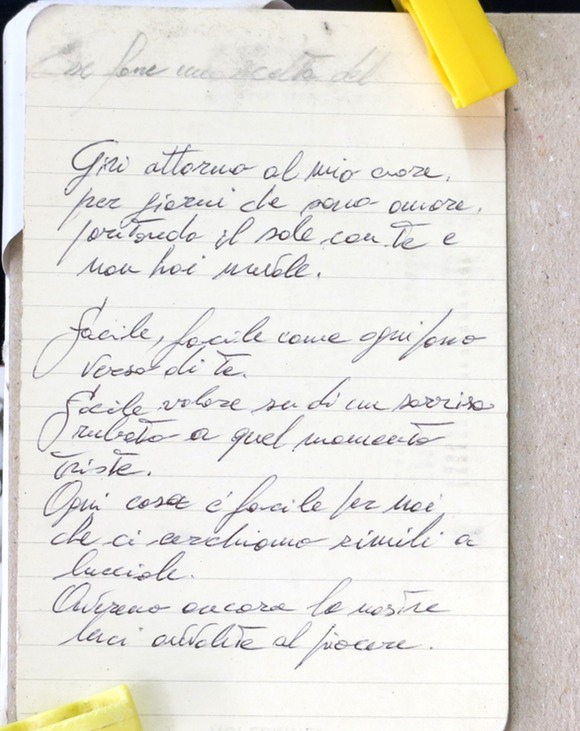 se fare una scelta del
Giri attorno al mio cuore,
per giorni che sono amore,
portando il sole con te e
non hai nuvole.
Facile, facile come ogni passo
verso di te.
Facile volare su di un sorriso
rubato a quel momento
triste.
Ogni cosa è facile per noi
che ci cerchiamo simili a
lucciole.
ancora le nostre
luci al piacere.